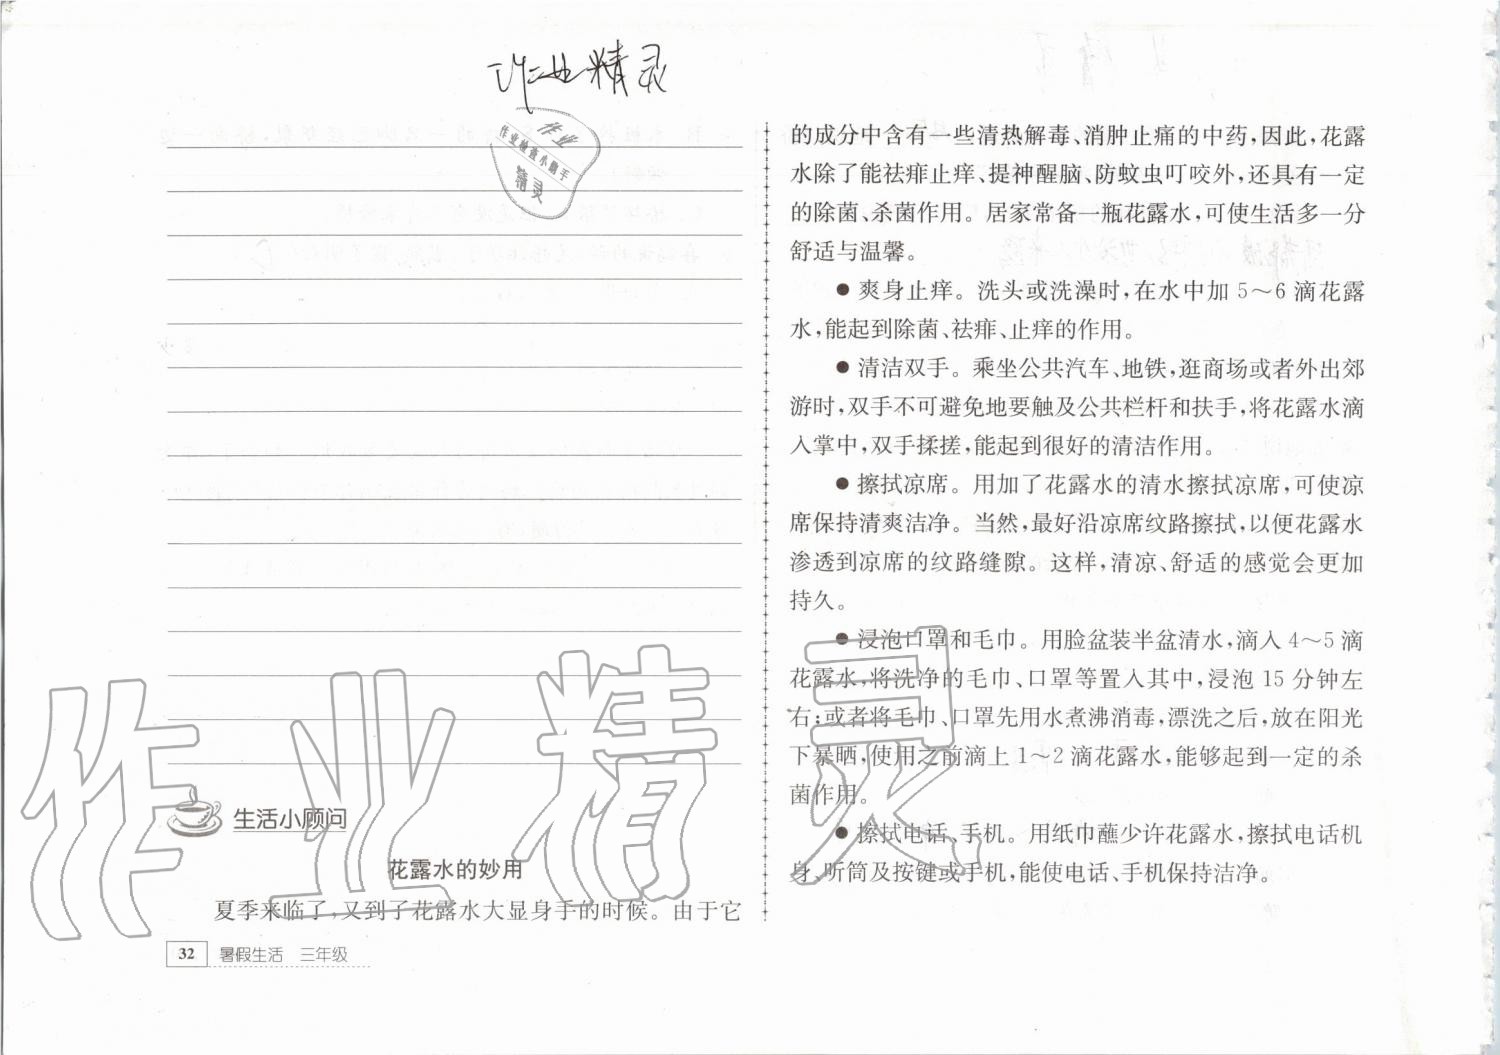 作业精灵
作业
作业检查小助手
精灵
生活小顾问
花露水的妙用
夏季来临了,又到了花露水大显身手的时候。由于它
32 暑假生活 三年级
的成分中含有一些清热解毒、消肿止痛的中药,因此,花露
水除了能祛痱止痒、提神醒脑、防蚊虫叮咬外,还具有一定
的除菌、杀菌作用。居家常备一瓶花露水,可使生活多一分
舒适与温馨。
●爽身止痒。洗头或洗澡时,在水中加5～6滴花露
水,能起到除菌、祛痱、止痒的作用。
●清洁双手。乘坐公共汽车、地铁,逛商场或者外出郊
游时,双手不可避免地要触及公共栏杆和扶手,将花露水滴
入掌中,双手揉搓,能起到很好的清洁作用。
●擦拭凉席。用加了花露水的清水擦拭凉席,可使凉
席保持清爽洁净。当然,最好沿凉席纹路擦拭,以便花露水
渗透到凉席的纹路缝隙。这样,清凉、舒适的感觉会更加
持久。
●浸泡口罩和毛巾。用脸盆装半盆清水,滴入4～5滴
花露水,将洗净的毛巾、口罩等置入其中,浸泡15分钟左
右;或者将毛巾、口罩先用水煮沸消毒,漂洗之后,放在阳光
下暴晒,使用之前滴上1～2滴花露水,能够起到一定的杀
菌作用。
●擦拭电话、手机。用纸巾蘸少许花露水,擦拭电话机
身、听筒及按键或手机,能使电话、手机保持洁净。
作业精灵